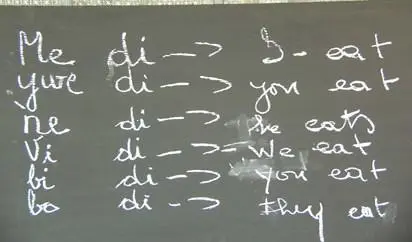 Me di —> I - eat
ywe di —> you eat
ne di —> he eats
Vi di —> We eat
bi di —> you eat
bo di —> they eat